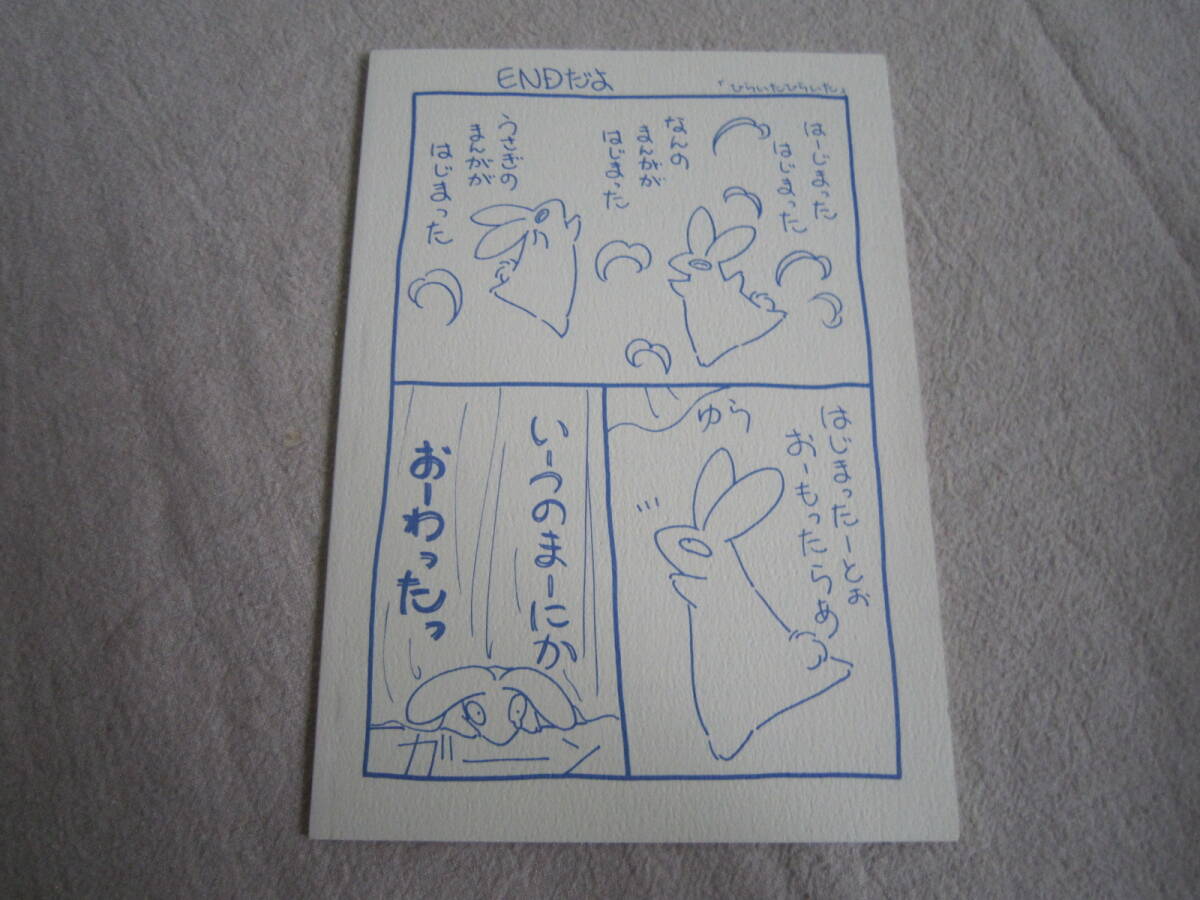 ENDだよ
「ひらいたひらいた」
はーじまった
はじまった
なんの
まんがが
はじまった
うさぎの
まんがが
はじまった
はじまったーとぉ
おーもったらぁ
ゆら
いーつのまーにか
おーわったっ
ガーン